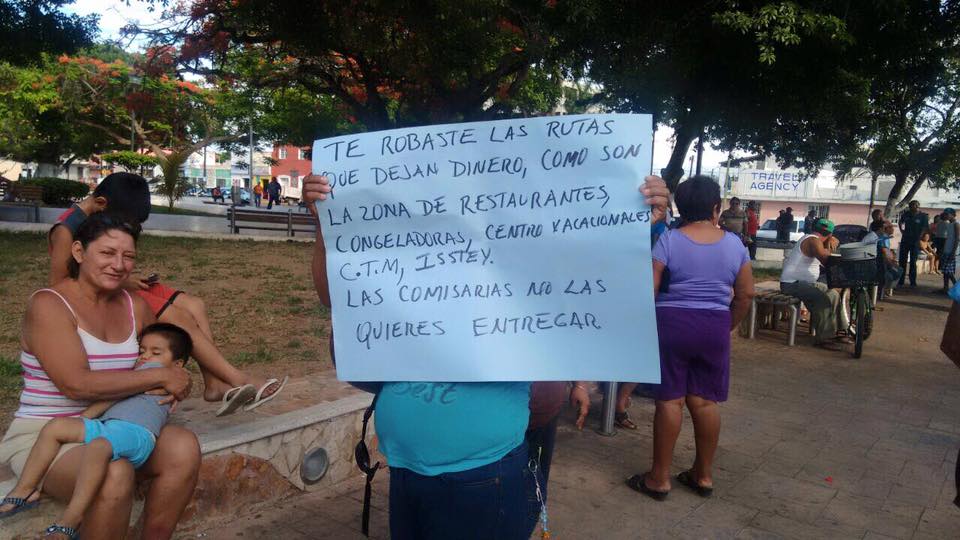 TE ROBASTE LAS RUTAS
QUE DEJAN DINERO, COMO SON
LA ZONA DE RESTAURANTES,
CONGELADORAS, CENTRO VACACIONALES
C.T.M, ISSTEY.
LAS COMISARIAS NO LAS
QUIERES ENTREGAR
Best
TRAVEL
AGENCY